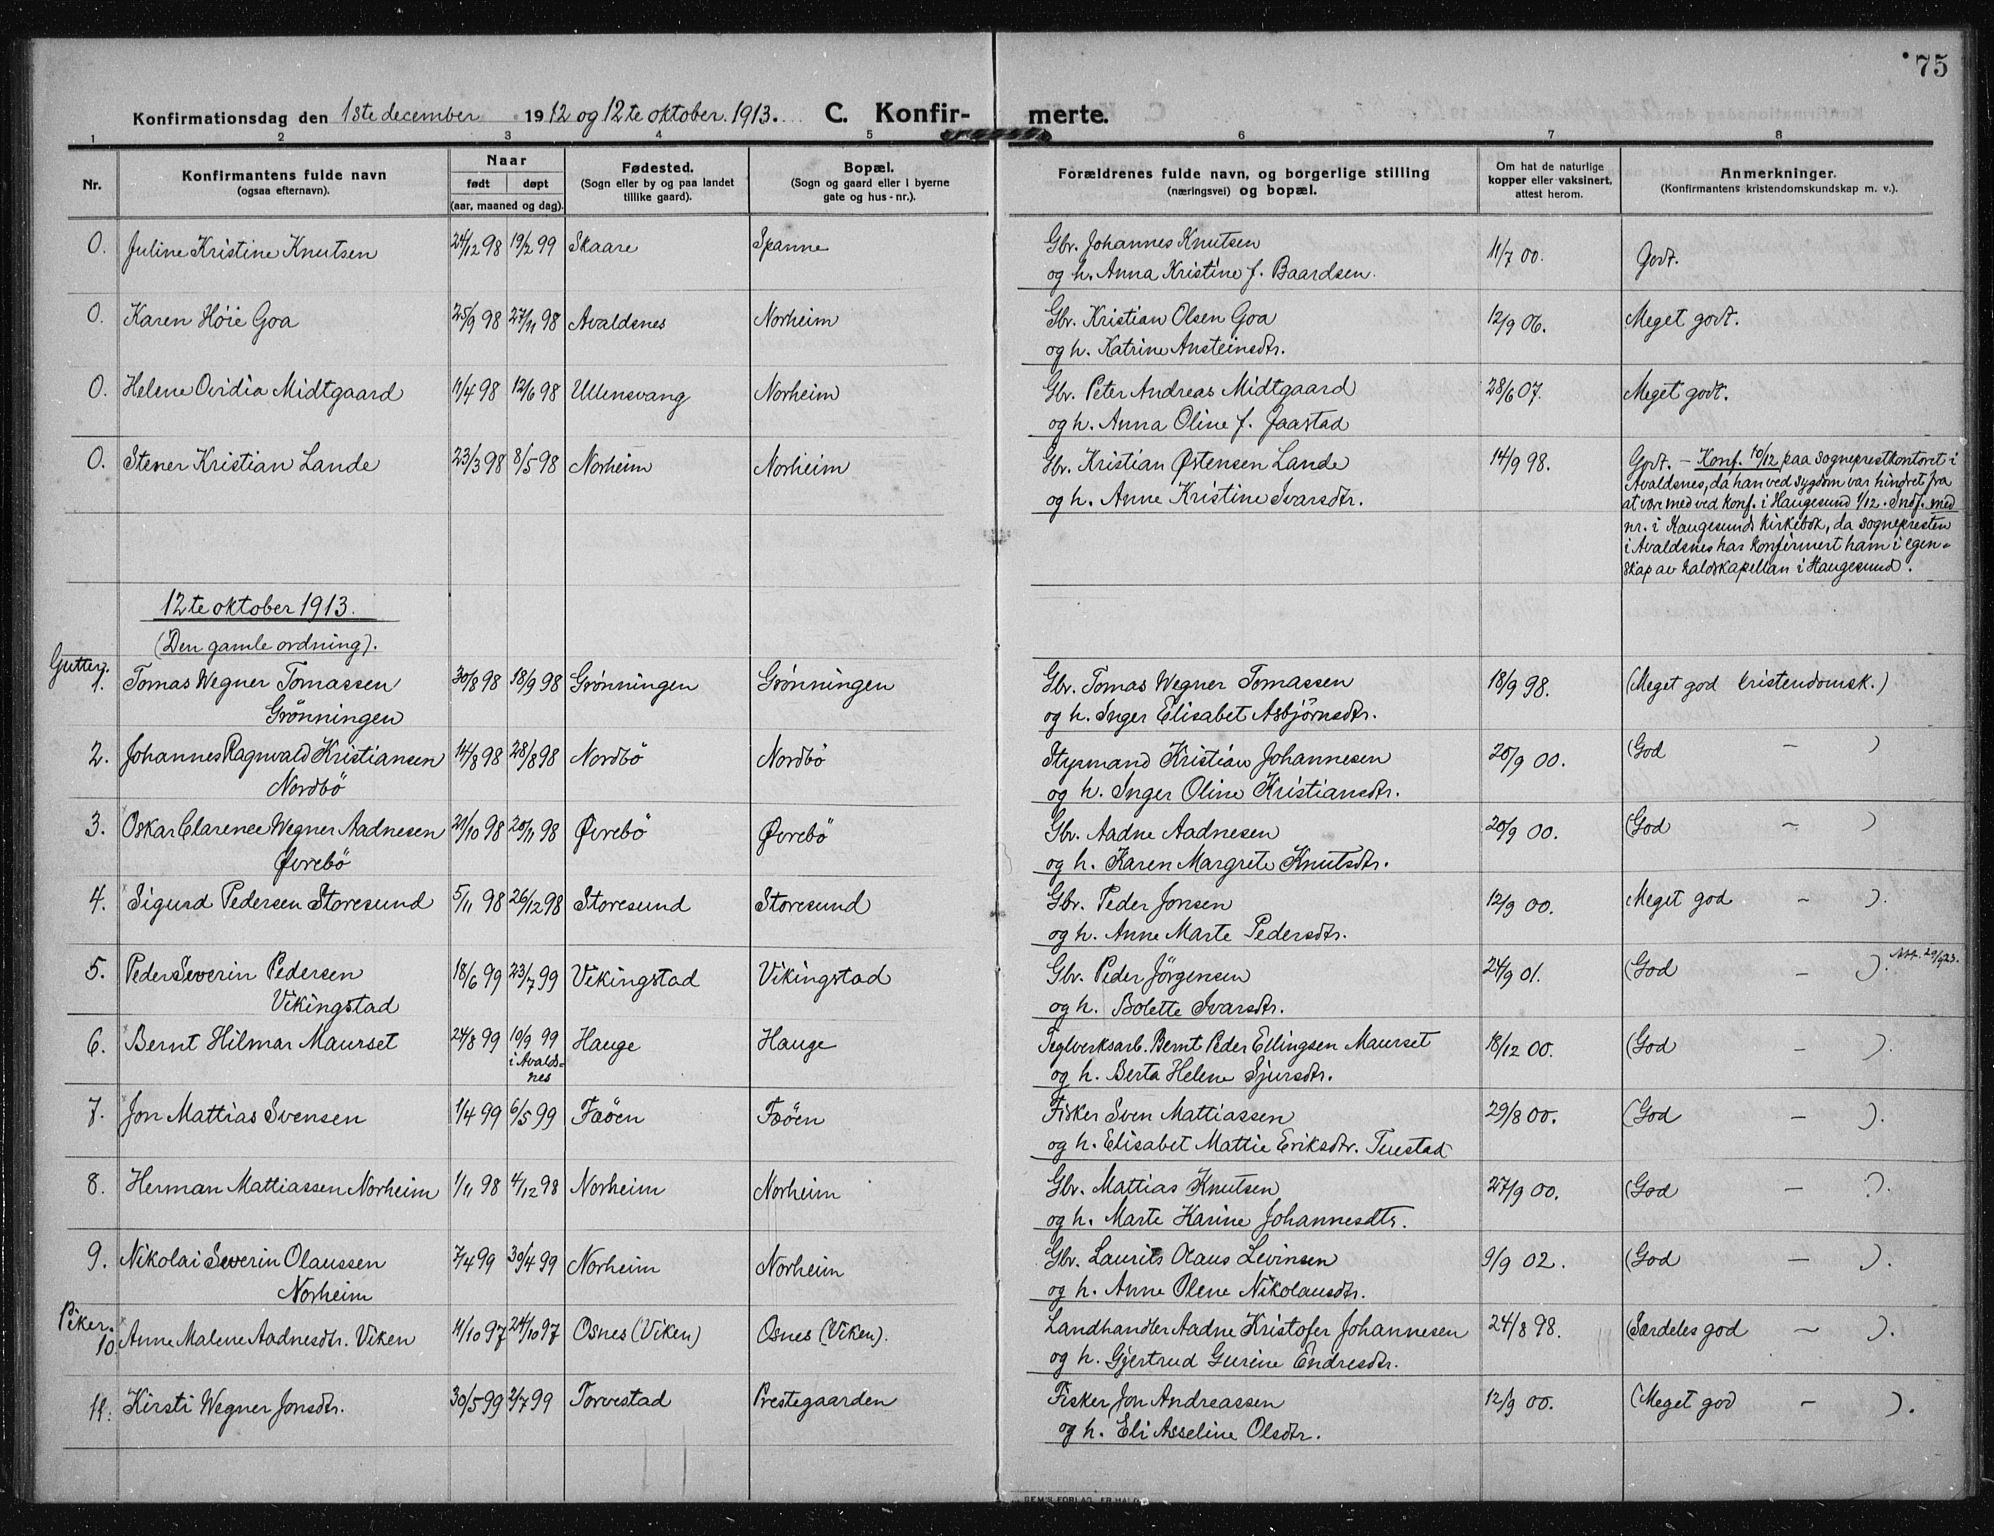 75
Konfirmationsdag den 1ste december 1912 og 12te oktober 1913. C. Konfir- merte.
1 2 3 4 5 6 7 8
Nr. Konfirmantens fulde navn (ogsaa efternavn). Naar født døpt (aar, maaned og dag). Fødested. (Sogn eller by og paa landet tillike gaard). Bopæl. (Sogn og gaard eller i byerne gate og hus-nr.). Forældrenes fulde navn, og borgerlige stilling (næringsvei) og bopæl. Om hat de naturlige kopper eller vaksinert, attest herom. Anmerkninger. (Konfirmantens kristendomskundskap m. v.).
0. Juline Kristine Knutsen 24/12 98 19/2 99 Skaare Spanne Gbr. Johannes Knutsen 11/7 00. Godt.
og h. Anna Kristine f. Baardsen.
0. Karen Høie Goa 25/9 98 27/11 98 Avaldsnes Norheim Gbr. Kristian Olsen Goa 12/9 06. Meget godt.
og h. Katrine Ansteinsdtr.
0. Helene Ovidia Midtgaard 11/4 98 12/6 98 Ullensvang Norheim Gbr. Peter Andreas Midtgaard 28/6 07. Meget godt.
og h. Anna Oline f. Jaastad
0. Stener Kristian Lande 23/3 98 8/5 98 Norheim Norheim Gbr. Kristian Østensen Lande 14/9 98. Godt. – Konf. 10/12 paa sogneprestkontoret i
Avaldsnes, da han ved sygdom var hindret fra
og h. Anne Kristine Ivarsdtr. at være med ved konf. i Haugesund 1/12. Indf. med
nr. i Haugesunds kirkebok, da sognepresten
i Avaldsnes har konfirmert ham i egen-
skap av kaldskapellan i Haugesund.
12te oktober 1913.
(Den gamle ordning).
Gutter.
1. Tomas Wegner Tomassen 30/8 98 18/9 98 Grønningen Grønningen Gbr. Tomas Wegner Tomassen 18/9 98. (Meget god kristendomsk.)
Grønningen og h. Inger Elisabet Asbjörnsdtr.
2. Johannes Ragnvald Kristiansen 14/8 98 28/8 98 Nordbö Nordbö Styrmand Kristian Johannesen 20/9 00. (God – )
Nordbö og h. Inger Oline Kristiansdtr.
3. Oskar Clarence Wegner Aadnesen 21/10 98 20/11 98 Øvrebö Øvrebö Gbr. Aadne Aadnesen 20/9 00. (God – )
Øvrebö og h. Karen Margrete Knutsdtr.
4. Sigurd Pedersen Storesund 5/11 98 26/12 98 Storesund Storesund Gbr. Peder Jonsen 12/9 00. Meget god – ).
og h. Anne Marte Pedersdtr.
5. Peder Severin Pedersen 18/6 99 23/7 99 Vikingstad Vikingstad Gbr. Peder Jörgensen 24/9 01. (God – ).
Vikingstad og h. Bolette Ivarsdtr.
6. Bernt Hilmar Maurset 24/8 99 10/9 99 i Avalds-nes Hauge Hauge Teglverksarb. Bernt Peder Ellingsen Maurset 18/12 00. (God – ).
og h. Berta Helene Sjursdtr.
7. Jon Mattias Svensen 1/4 99 6/5 99 Fæöen Fæöen Fisker Sven Mattiassen 29/8 00. (God – ).
og h. Elisabet Mattie Eriksdtr. Tuestad
8. Herman Mattiassen Norheim 1/11 98 4/12 98 Norheim Norheim Gbr. Mattias Knutsen 27/9 00. (God – ).
og h. Marte Karine Johannesdtr.
9. Nikolai Severin Olaussen 7/4 99 30/4 99 Norheim Norheim Gbr. Laurits Olaus Levinsen 9/9 02. (God – ).
Norheim og h. Anne Olene Nikolausdtr.
Piker.
10. Anne Malene Aadnesdtr. Viken 11/10 97 24/10 97 Osnes (Viken) Osnes (Viken). Landhandler Aadne Kristofer Johannesen 24/8 98. (Særdeles god – ).
og h. Gjertrud Gurine Endresdtr.
11. Kirsti Wegner Jonsdtr. 30/5 99 2/7 99 Torvestad Prestegaarden Fisker Jon Andreassen 12/9 00. (Meget god – ).
og h. Eli Asseline Olsdtr.